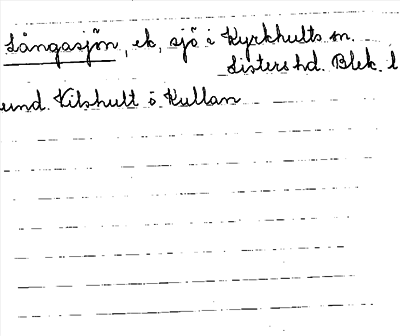 Långasjön, ek, sjö i Kyrkhults sn.
Listers hd. Blek. l
und. Vilshult o Kullan